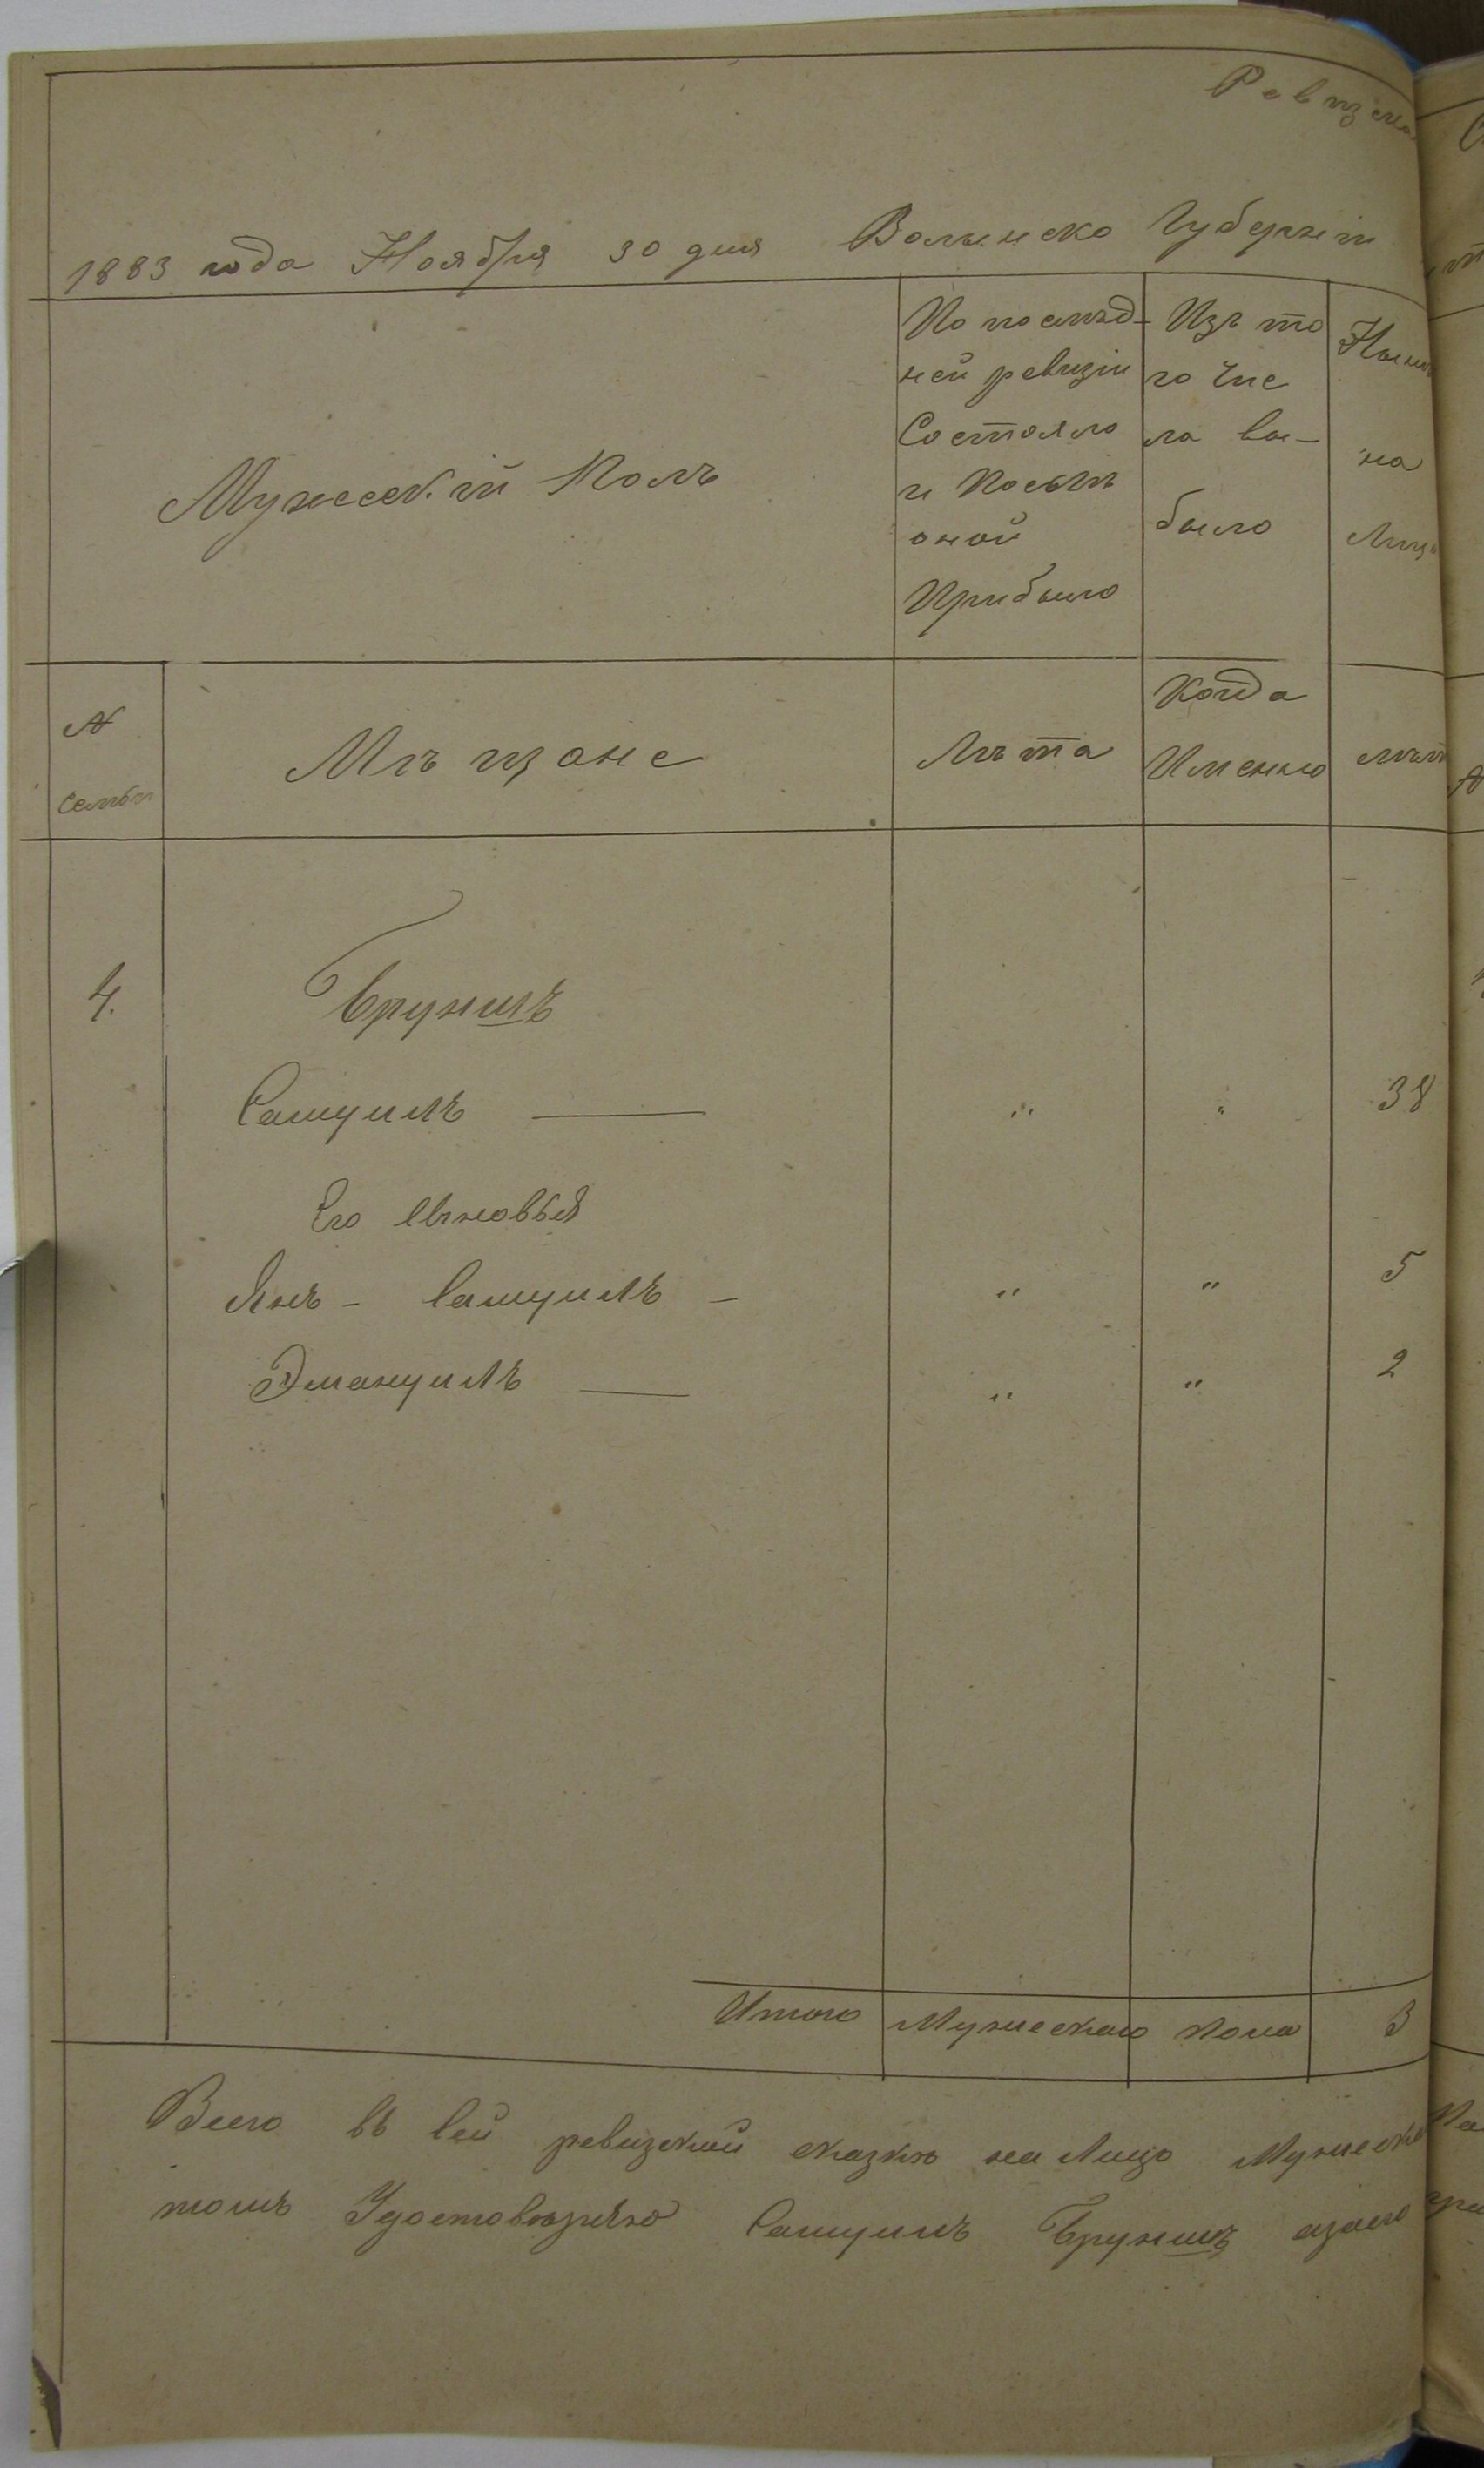 Ревизска
1883 года Ноября 30 дня Волынско Губернiи
Мужескiй Полъ
По послѣд-
ней ревизiи
Состояло
и Послѣ
оной
Прибыло
Изъ то
го Чис
ла вы-
было
Нынѣ
на
Лицо
№
семьи
Мѣщане
Лѣта
Когда
Именно
лѣта
4. Брунишъ
Самуилъ — " " 38
Его Сыновья
Янъ - Самуилъ - " " 5
Эмануилъ — " " 2
Итого Мужескаго пола 3
Всего въ сей ревизской сказкѣ на Лицо Мужеска
томъ Удостовѣряю Самуилъ Брунишъ